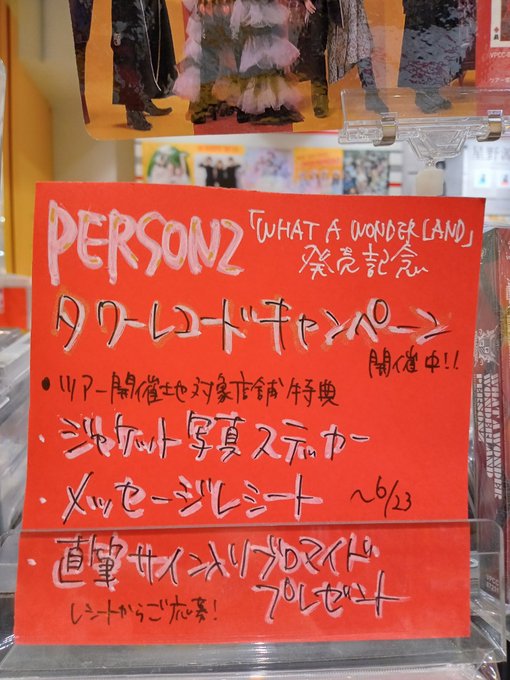 PERSONZ
「WHAT A WONDERLAND」
発売記念
タワーレコードキャンペーン
開催中!!
● ツアー開催地対象店舗特典
・ジャケット写真ステッカー
・メッセージレシート ～6/23
・直筆サイン入りブロマイド
プレゼント
レシートからご応募!
WHAT A WONDER
WONDERLAND
PERSONZ